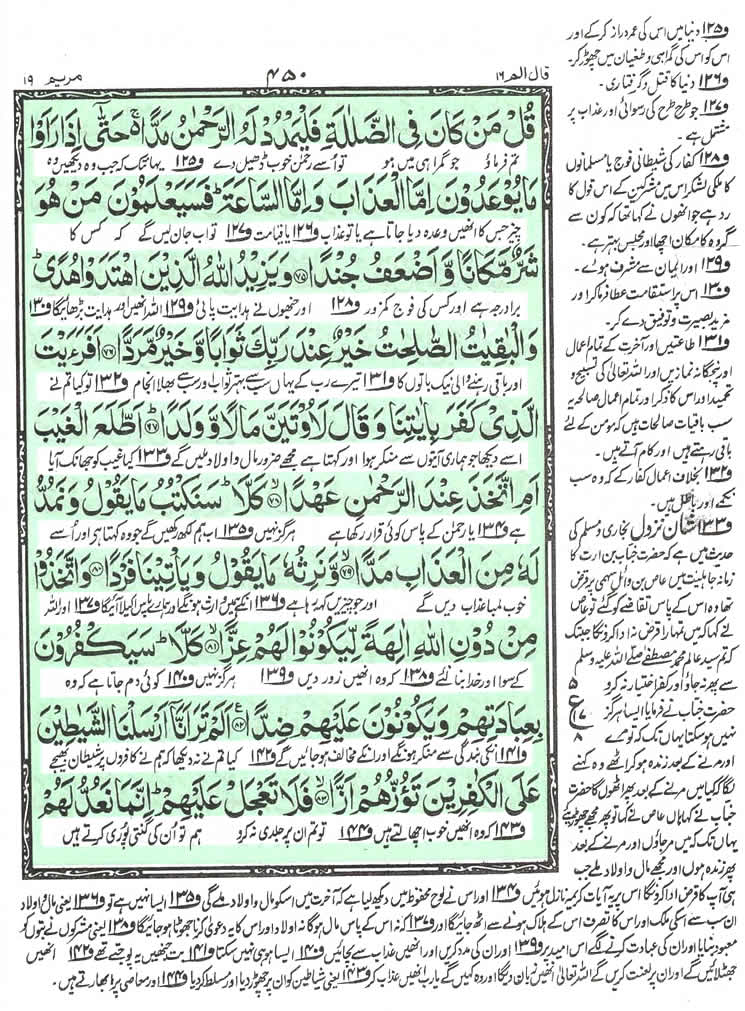 قال الم ۱۶
۴۵۰
مریم ۱۹
قُلْ مَنْ كَانَ فِى الضَّلٰلَةِ فَلْيَمْدُدْ لَهُ الرَّحْمٰنُ مَدًّا ۚ حَتّٰۤى اِذَا رَاَوْا
تم فرماؤ جو گمراہی میں ہو تو اُسے رحمٰن خوب ڈھیل دے و۱۲۵ یہاں تک کہ جب وہ دیکھیں وہ
مَا يُوْعَدُوْنَ اِمَّا الْعَذَابَ وَ اِمَّا السَّاعَةَ ؕ فَسَيَعْلَمُوْنَ مَنْ هُوَ
چیز جس کا انھیں وعدہ دیا جاتا ہے یا تو عذاب و۱۲۶ یا قیامت و۱۲۷ تو اب جان لیں گے کہ کس کا
شَرٌّ مَّكَانًا وَّ اَضْعَفُ جُنْدًا ﴿۷۵﴾ وَ يَزِيْدُ اللّٰهُ الَّذِيْنَ اهْتَدَوْا هُدًى ؕ
برا درجہ ہے اور کس کی فوج کمزور و۱۲۸ اور جنھوں نے ہدایت پائی و۱۲۹ اللہ انھیں اور ہدایت بڑھائے گا و۱۳۰
وَ الْبٰقِيٰتُ الصّٰلِحٰتُ خَيْرٌ عِنْدَ رَبِّكَ ثَوَابًا وَّ خَيْرٌ مَّرَدًّا ﴿۷۶﴾ اَفَرَءَيْتَ
اور باقی رہنے والی نیک باتوں کا و۱۳۱ تیرے رب کے یہاں سب سے بہتر ثواب اور سب سے بھلا انجام و۱۳۲ تو کیا تم نے
الَّذِىْ كَفَرَ بِاٰيٰتِنَا وَ قَالَ لَاُوْتَيَنَّ مَالًا وَّ وَلَدًا ﴿۷۷﴾ اَطَّلَعَ الْغَيْبَ
اسے دیکھا جو ہماری آیتوں سے منکر ہوا اور کہتا ہے مجھے ضرور مال و اولاد ملیں گے و۱۳۳ کیا غیب کو جھانک آیا
اَمِ اتَّخَذَ عِنْدَ الرَّحْمٰنِ عَهْدًا ﴿۷۸﴾ كَلَّا ؕ سَنَكْتُبُ مَا يَقُوْلُ وَ نَمُدُّ
ہے و۱۳۴ یا رحمٰن کے پاس کوئی قرار رکھا ہے ہرگز نہیں و۱۳۵ اب ہم لکھ رکھیں گے جو وہ کہتا ہے اور اُسے
لَهٗ مِنَ الْعَذَابِ مَدًّا ﴿۷۹﴾ وَّ نَرِثُهٗ مَا يَقُوْلُ وَ يَاْتِيْنَا فَرْدًا ﴿۸۰﴾ وَ اتَّخَذُوْا
خوب لمبا عذاب دیں گے اور جو چیزیں کہہ رہا ہے و۱۳۶ انکے ہمیں وارث ہونگے اور ہمارے پاس اکیلا آئیگا و۱۳۷ اور اللہ
مِنْ دُوْنِ اللّٰهِ اٰلِهَةً لِّيَكُوْنُوْا لَهُمْ عِزًّا ﴿۸۱﴾ كَلَّا ؕ سَيَكْفُرُوْنَ
کے سوا اور خدا بنا لئے و۱۳۸ کہ وہ انھیں زور دیں و۱۳۹ ہرگز نہیں و۱۴۰ کوئی دم جاتا ہے کہ وہ
بِعِبَادَتِهِمْ وَ يَكُوْنُوْنَ عَلَيْهِمْ ضِدًّا ﴿۸۲﴾ اَلَمْ تَرَ اَنَّاۤ اَرْسَلْنَا الشَّيٰطِيْنَ
و۱۴۱ انکی بندگی سے منکر ہونگے اور انکے مخالف ہو جائیں گے و۱۴۲ کیا تم نے نہ دیکھا کہ ہم نے کافروں پر شیطان بھیجے
عَلَى الْكٰفِرِيْنَ تَؤُزُّهُمْ اَزًّا ﴿۸۳﴾ فَلَا تَعْجَلْ عَلَيْهِمْ ؕ اِنَّمَا نَعُدُّ لَهُمْ
و۱۴۳ کہ وہ انھیں خوب اچھالتے ہیں و۱۴۴ تو تم ان پر جلدی نہ کرو ہم تو اُن کی گنتی پوری کرتے ہیں
و۱۲۵ دنیا میں اس کی عمر دراز کر کے اور
اس کو اس کی گمراہی و طغیان میں چھوڑ کر۔
و۱۲۶ دنیا کا قتل و گرفتاری۔
و۱۲۷ جو طرح طرح کی رسوائی اور عذاب پر
مشتمل ہے۔
و۱۲۸ کفار کی شیطانی فوج یا مسلمانوں
کا ملکی لشکر اس میں مشرکین کے اس قول کا
رد ہے جو انھوں نے کہا تھا کہ کون سے
گروہ کا مکان اچھا اور مجلس بہتر ہے۔
و۱۲۹ اور ایمان سے مشرف ہوئے۔
و۱۳۰ اس پر استقامت عطا فرما کر اور
مزید بصیرت و توفیق دے کر۔
و۱۳۱ طاعتیں اور آخرت کے تمام اعمال
اور پنجگانہ نمازیں اور اللہ تعالیٰ کی تسبیح و
تحمید اور اس کا ذکر اور تمام اعمال صالحہ یہ
سب باقیات صالحات ہیں کہ مومن کے لئے
باقی رہتے ہیں اور کام آتے ہیں۔
و۱۳۲ بخلاف اعمال کفار کے کہ وہ سب
نکمے اور باطل ہیں۔
و۱۳۳ شان نزول بخاری و مسلم کی
حدیث میں ہے کہ حضرت خباب بن ارت کا
زمانہ جاہلیت میں عاص بن وائل سہمی پر قرض
تھا وہ اس کے پاس تقاضے کو گئے تو عاص
نے کہا کہ میں تمہارا قرض نہ ادا کروں گا جبتک
کہ تم سید عالم محمد مصطفےٰ صلی اللہ علیہ وسلم
سے پھر نہ جاؤ اور کفر اختیار نہ کرو
حضرت خباب نے فرمایا ایسا ہرگز
نہیں ہو سکتا یہاں تک کہ تو مرے
اور مرنے کے بعد زندہ ہو کر اٹھے وہ کہنے
لگا کیا میں مرنے کے بعد پھر اٹھوں گا حضرت
خباب نے کہا ہاں عاص نے کہا تو پھر مجھے چھوڑیئے
یہاں تک کہ میں مر جاؤں اور مرنے کے بعد
پھر زندہ ہوں اور مجھے مال و اولاد ملے جب
۵
ع
۱۷
۸
ہی آپ کا قرض ادا کروں گا اس پر یہ آیات کریمہ نازل ہوئیں و۱۳۴ اور اس نے لوح محفوظ میں دیکھ لیا ہے کہ آخرت میں اسکو مال و اولاد ملے گی و۱۳۵ ایسا نہیں ہے تو و۱۳۶ یعنی مال و اولاد
ان سب سے اسکی ملک اور اس کا تصرف اس کے ہلاک ہونے سے اٹھ جائیگا اور و۱۳۷ کہ نہ اس کے پاس مال ہوگا نہ اولاد اور اس کا یہ دعویٰ کرنا جھوٹا ہو جائیگا و۱۳۸ یعنی مشرکوں نے بتوں کو
معبود بنایا اور ان کی عبادت کرنے لگے اس امید پر و۱۳۹ اور ان کی مدد کریں اور انھیں عذاب سے بچائیں و۱۴۰ ایسا ہو ہی نہیں سکتا و۱۴۱ بت جنھیں یہ پوجتے تھے و۱۴۲ انھیں
جھٹلائیں گے اور ان پر لعنت کریں گے اللہ تعالیٰ انھیں زبان دیگا اور وہ کہیں گے یا رب انھیں عذاب کر و۱۴۳ یعنی شیاطین کو ان پر چھوڑ دیا اور مسلط کر دیا و۱۴۴ اور معاصی پر ابھارتے ہیں۔